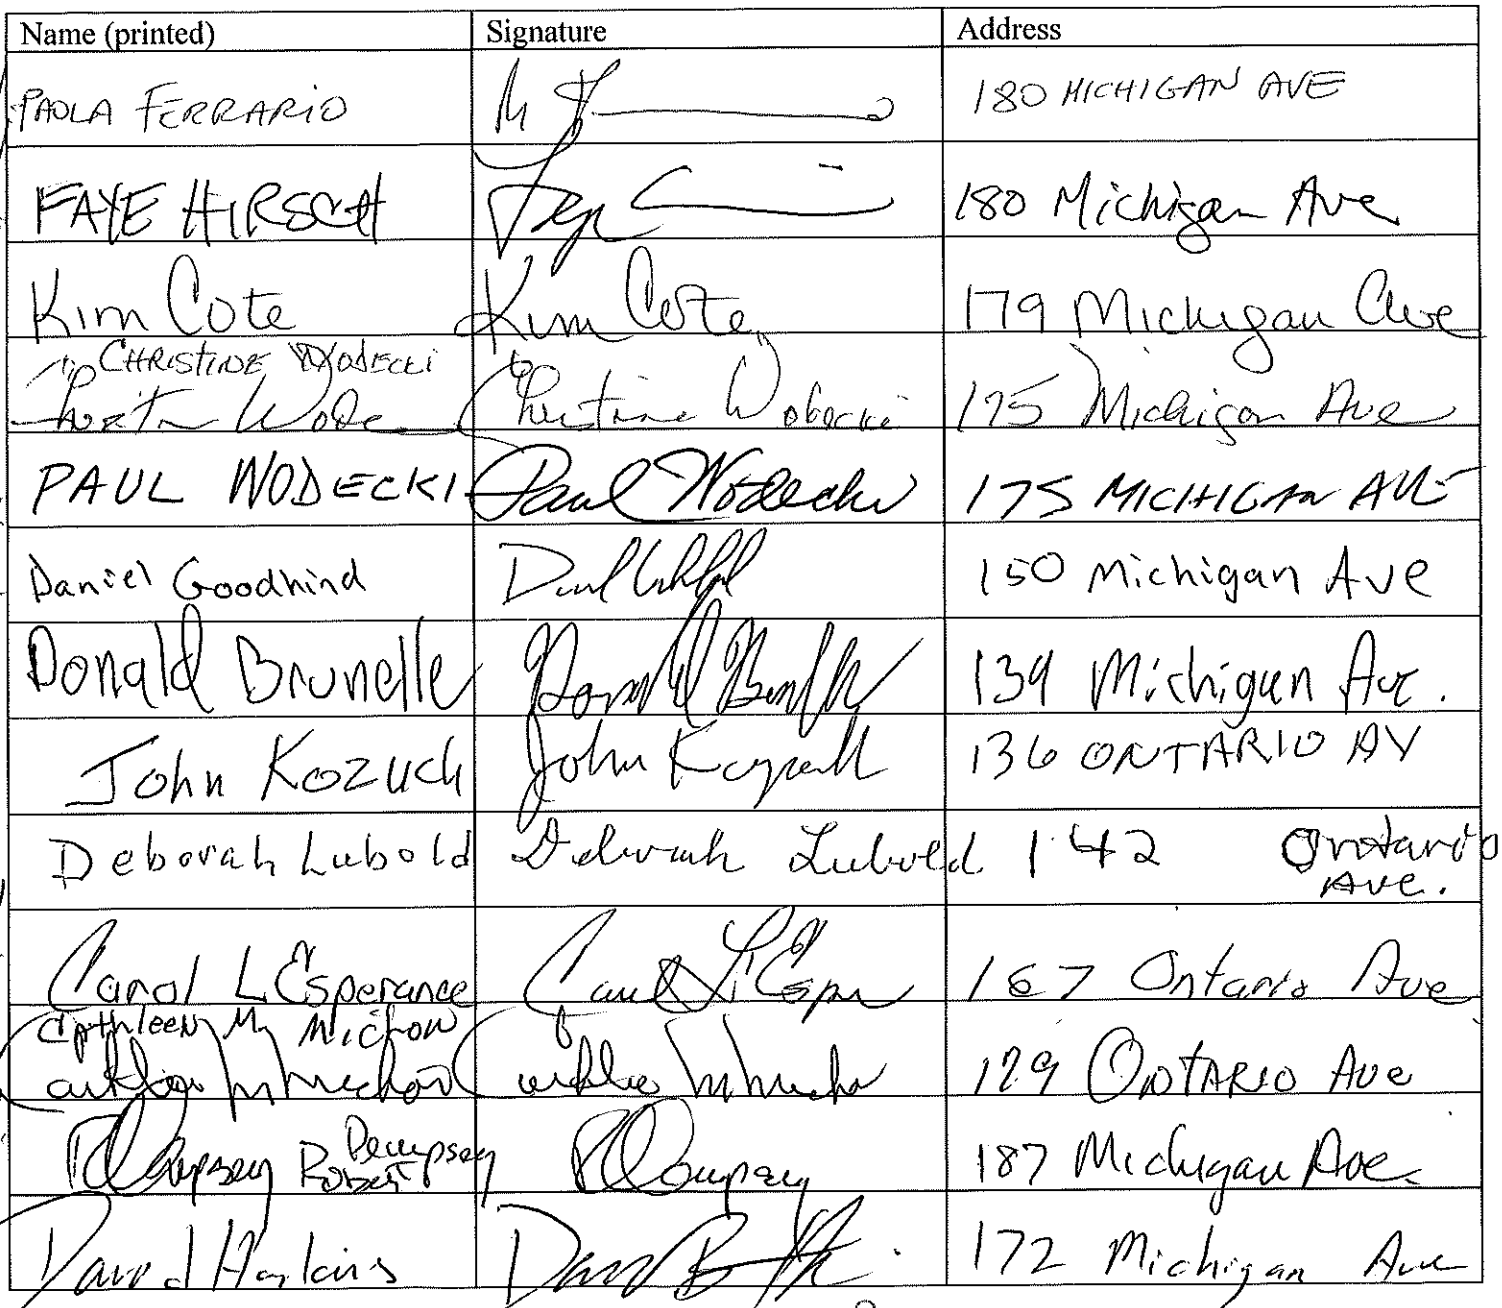 Name (printed) Signature Address
PAOLA FERRARIO 180 MICHIGAN AVE
FAYE HIRSCH 180 Michigan Ave
Kim Cote Kim Cote 179 Michigan Ave
CHRISTINE WODECKI
Christine Wodecki 175 Michigan Ave
PAUL WODECKI Paul Wodecki 175 MICHIGAN AVE
Daniel Goodhind 150 Michigan Ave
Donald Brunelle Donald 139 Michigan Ave.
John Kozuch John 136 ONTARIO AV
Deborah Lubold Deborah Lubold 142 Ontario
Ave.
Carol L'Esperance Carol 167 Ontario Ave
Cathleen M. Michow
129 Ontario Ave
Dempsey
Robert 187 Michigan Ave.
David 172 Michigan Ave